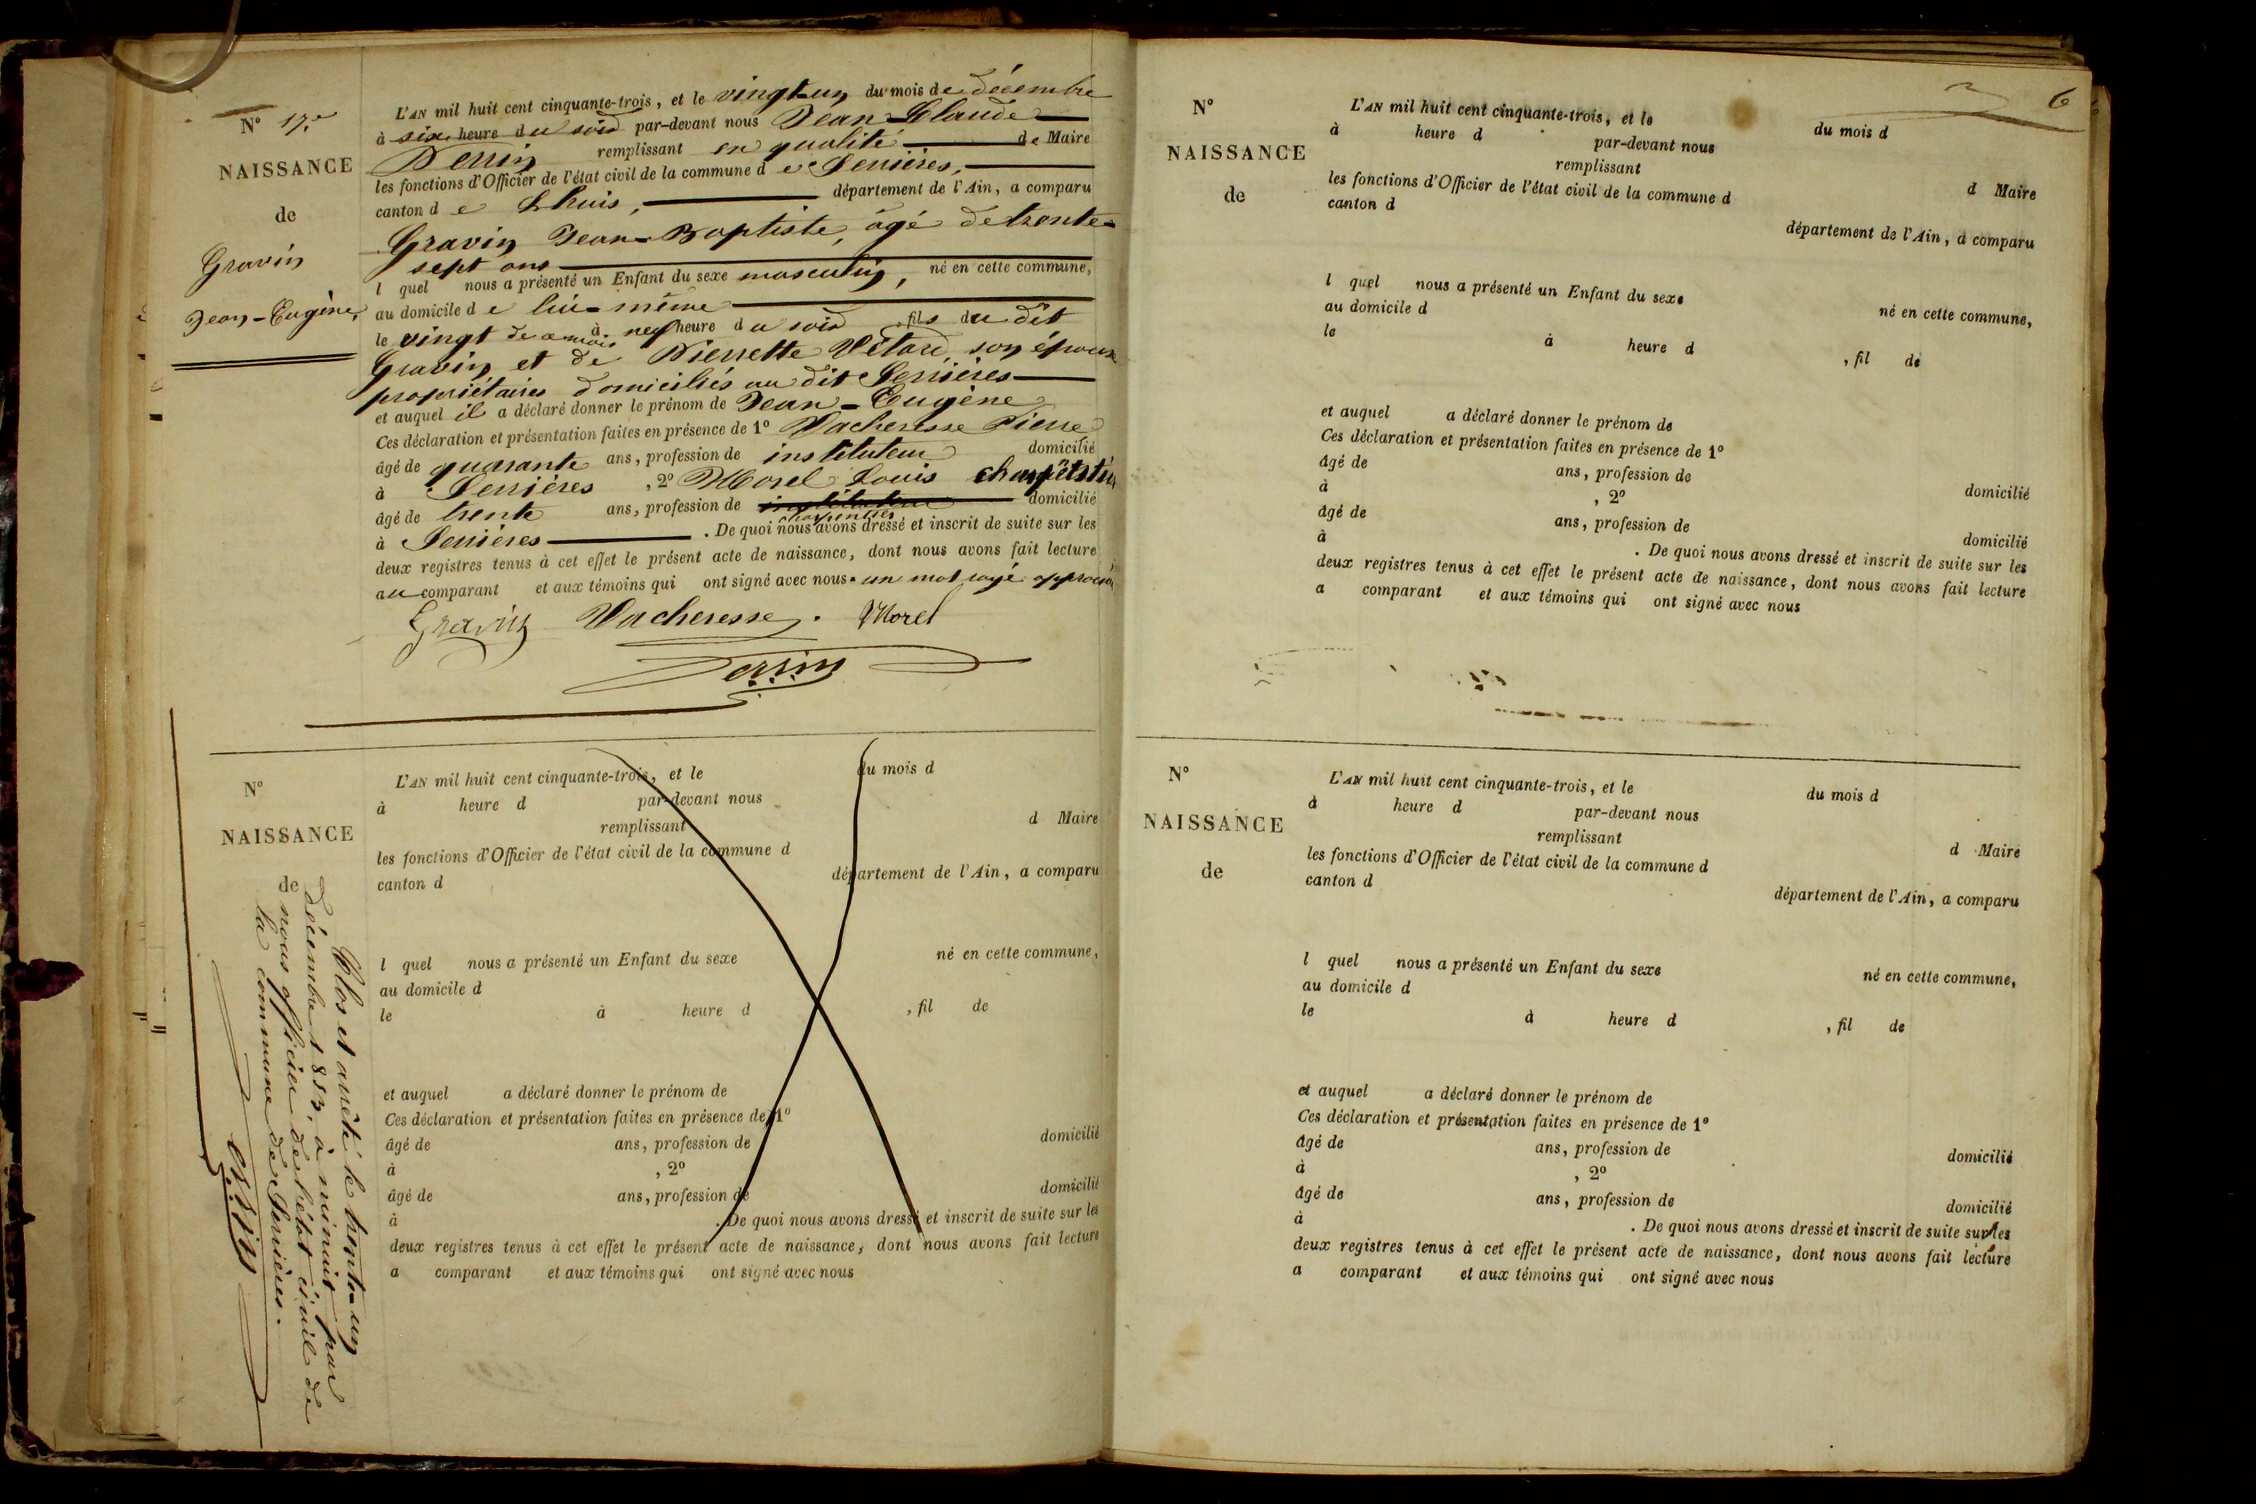 N° 17.e
NAISSANCE
de
Gravin
Jean-Eugène,
L'AN mil huit cent cinquante-trois, et le vingt-un du mois de décembre
à six heure du soir par-devant nous Jean-Claude
Perrin remplissant en qualité de Maire
les fonctions d'Officier de l'état civil de la commune de Serrières,
canton de Lhuis, département de l'Ain, a comparu
Gravin Jean-Baptiste, âgé de trente-
sept ans
l quel nous a présenté un Enfant du sexe masculin, né en cette commune,
au domicile de lui-même
le vingt de ce mois à neuf heure du soir, fils du dit
Gravin et de Pierrette Vétard, son épouse
propriétaires domiciliés au dit Serrières
et auquel il a déclaré donner le prénom de Jean-Eugène
Ces déclaration et présentation faites en présence de 1° Vacheresse Pierre
âgé de quarante ans, profession de instituteur domicilié
à Serrières, 2° Morel Louis
âgé de trente ans, profession de instituteur charpentier domicilié
à Serrières. De quoi nous avons dressé et inscrit de suite sur les
deux registres tenus à cet effet le présent acte de naissance, dont nous avons fait lecture
au comparant et aux témoins qui ont signé avec nous. un mot rayé approuvé
Gravin Vacheresse. Morel
Perrin
N°
NAISSANCE
de
L'AN mil huit cent cinquante-trois, et le du mois d
à heure d par-devant nous
remplissant d Maire
les fonctions d'Officier de l'état civil de la commune d
canton d département de l'Ain, a comparu
l quel nous a présenté un Enfant du sexe né en cette commune,
au domicile d
le à heure d , fil de
et auquel a déclaré donner le prénom de
Ces déclaration et présentation faites en présence de 1°
âgé de ans, profession de domicilié
à , 2°
âgé de ans, profession de domicilié
à . De quoi nous avons dressé et inscrit de suite sur les
deux registres tenus à cet effet le présent acte de naissance, dont nous avons fait lecture
a comparant et aux témoins qui ont signé avec nous
Clos et arrêté le trente-un
décembre 1853, à minuit par
nous officier de l'état civil de
la commune de Serrières.
Perrin
6
N°
NAISSANCE
de
L'AN mil huit cent cinquante-trois, et le du mois d
à heure d par-devant nous
remplissant d Maire
les fonctions d'Officier de l'état civil de la commune d
canton d département de l'Ain, a comparu
l quel nous a présenté un Enfant du sexe né en cette commune,
au domicile d
le à heure d , fil de
et auquel a déclaré donner le prénom de
Ces déclaration et présentation faites en présence de 1°
âgé de ans, profession de domicilié
à , 2°
âgé de ans, profession de domicilié
à . De quoi nous avons dressé et inscrit de suite sur les
deux registres tenus à cet effet le présent acte de naissance, dont nous avons fait lecture
a comparant et aux témoins qui ont signé avec nous
N°
NAISSANCE
de
L'AN mil huit cent cinquante-trois, et le du mois d
à heure d par-devant nous
remplissant d Maire
les fonctions d'Officier de l'état civil de la commune d
canton d département de l'Ain, a comparu
l quel nous a présenté un Enfant du sexe né en cette commune,
au domicile d
le à heure d , fil de
et auquel a déclaré donner le prénom de
Ces déclaration et présentation faites en présence de 1°
âgé de ans, profession de domicilié
à , 2°
âgé de ans, profession de domicilié
à . De quoi nous avons dressé et inscrit de suite sur les
deux registres tenus à cet effet le présent acte de naissance, dont nous avons fait lecture
a comparant et aux témoins qui ont signé avec nous